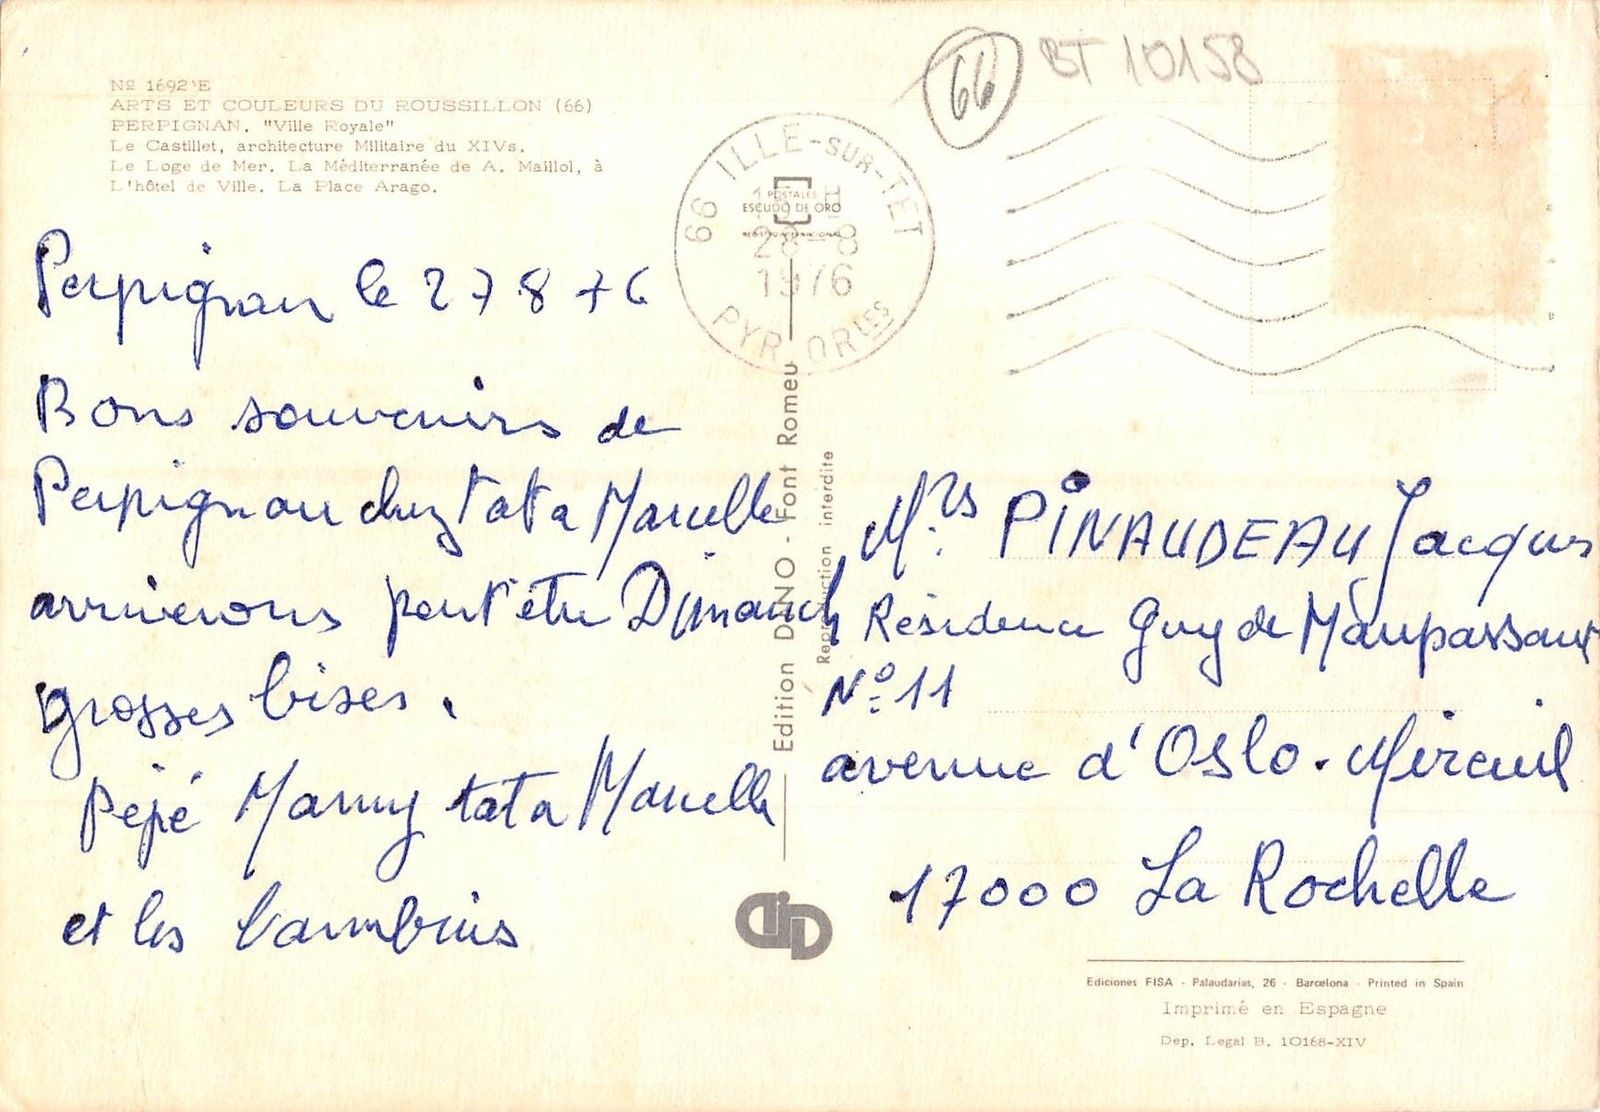 Nº 1692'E
ARTS ET COULEURS DU ROUSSILLON (66)
PERPIGNAN. "Ville Royale"
Le Castillet, architecture Militaire du XIVs.
Le Loge de Mer. La Méditerranée de A. Maillol, à
L'hôtel de Ville. La Place Arago.
66
BT 10158
66 ILLE-SUR-TET
28-8
1976
PYR. ORLES
POSTALES
ESCUDO DE ORO
Perpignan le 27 8 76
Bons souvenirs de
Perpignan chez tata Marcelle
arriverons peut'être Dimanch
grosses bises.
Pépé Mamy tata Marcelle
et les bambins
Edition DINO - Font Romeu
Reproduction interdite
Mrs PINAUDEAU Jacques
Résidence Guy de Maupassant
Nº 11
avenue d'Oslo. Mireuil
17000 La Rochelle
DiD
Ediciones FISA - Palaudarias, 26 - Barcelona - Printed in Spain
Imprimé en Espagne
Dep. Legal B. 10168-XIV